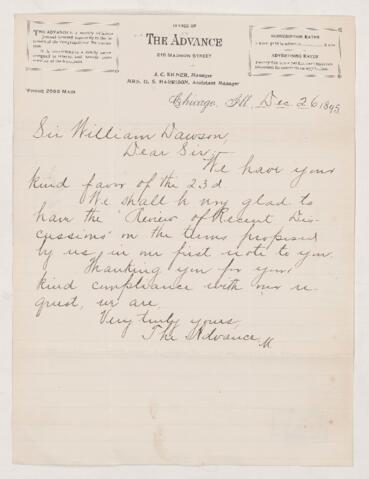 OFFICE OF
THE ADVANCE
215 MADISON STREET
THE ADVANCE is a weekly
SUBSCRIPTION RATES
ADVERTISING RATES
J. C. KILNER, Manager
MRS. G. S. HARRISON, Assistant Manager
'PHONE 2093 MAIN
Chicago, Ill. Dec 26 1895
Sir William Dawson,
Dear Sir:-
We have your
kind favor of the 23d
We shall be very glad to
have the "Review of Recent Dis-
cussions" on the terms proposed
by us, in our first note to you.
Thanking you for your
kind compliance with our re-
quest, we are,
Very truly yours,
The Advance
M